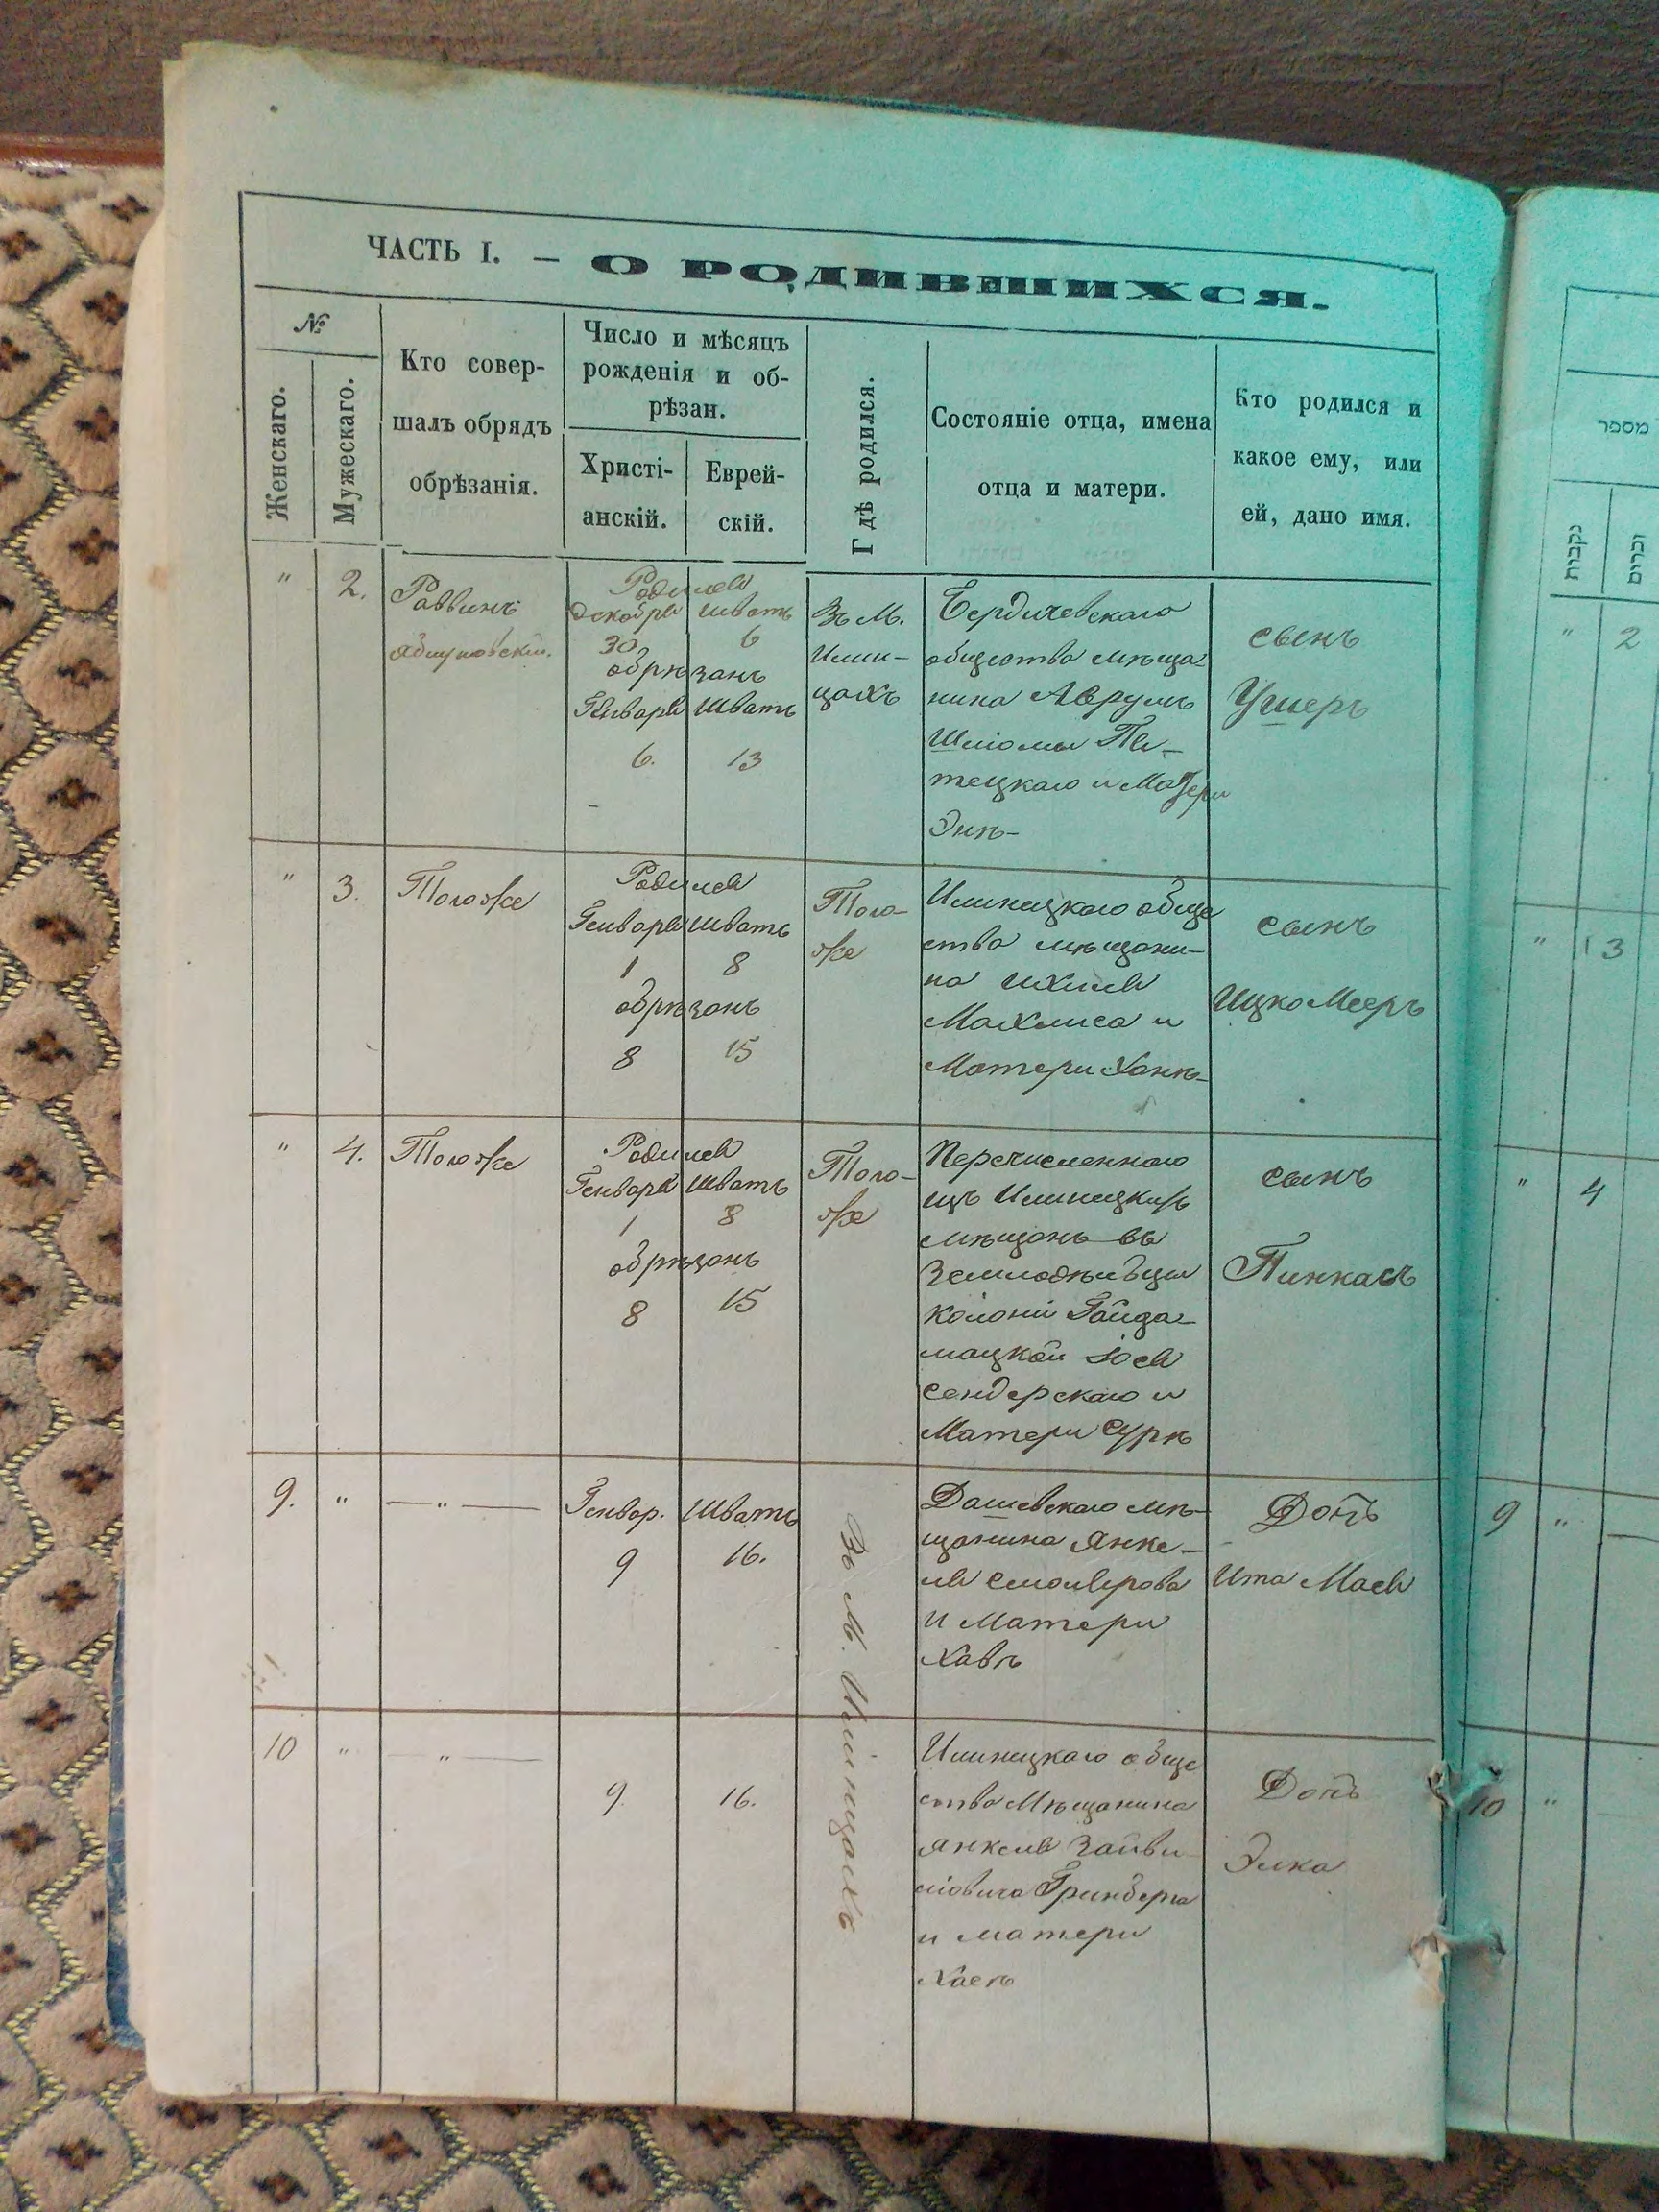 ЧАСТЬ I. — О РОДИВШИХСЯ.
№
Женскаго.
Мужескаго.
Кто совер-
шалъ обрядъ
обрѣзанія.
Число и мѣсяцъ
рожденія и об-
рѣзан.
Христі-
анскій.
Еврей-
скій.
Гдѣ родился.
Состояніе отца, имена
отца и матери.
Кто родился и
какое ему, или
ей, дано имя.
" 2.
Раввинъ
Родился
Декабря Шватъ
30 6
обрѣзанъ
Генваря Шватъ
6. 13
Въ М.
Илин-
цахъ
Бердичевскаго
общества мѣща
нина Аврумъ
Шліомы
тецкаго и Матери
Энѣ-
сынъ
Ушеръ
" 3.
Тогоже
Родился
Генваря Шватъ
1 8
обрѣзанъ
8 15
Того-
же
Илинецкаго обще
ства мѣщани-
на Ихиля
Махлиса и
Матери Ханѣ-
сынъ
Ицко Мееръ
" 4.
Тогоже
Родился
Генваря Шватъ
1 8
обрѣзанъ
8 15
Того-
же
Перечисленнаго
изъ Илинецкихъ
мѣщанъ въ
колоніи Гайда-
мацкой
Сендерскаго и
Матери Сурѣ
сынъ
Пинкасъ
9. " — " —
Генвар. Шватъ
9 16.
Въ М. Илинцахъ
Дашевскаго мѣ-
щанина Янке-
ля Смолярова
и Матери
Хавѣ
Дочь
Ита Мася
10 " — " —
9. 16.
Илинецкаго обще
ства Мѣщанина
Янкеля Зайви
ліовича Гринберга
и матери
Хаеѣ
Дочь
Элка
מספר
נקבות
זכרים
" 2
" 3
" 4
9 "
10 "